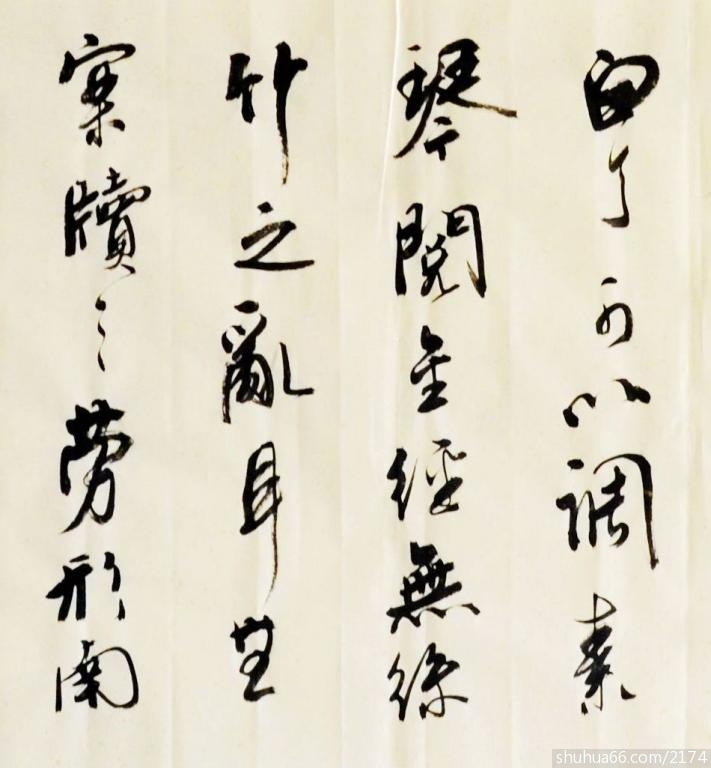 白丁可以調素
琴閱金經無絲
竹之亂耳無
案牘之勞形南
shuhua66.com/2174